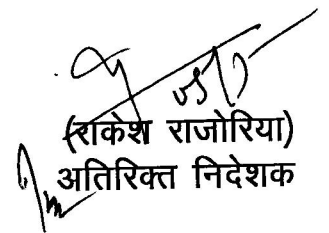 (राकेश राजोरिया)
अतिरिक्त निदेशक